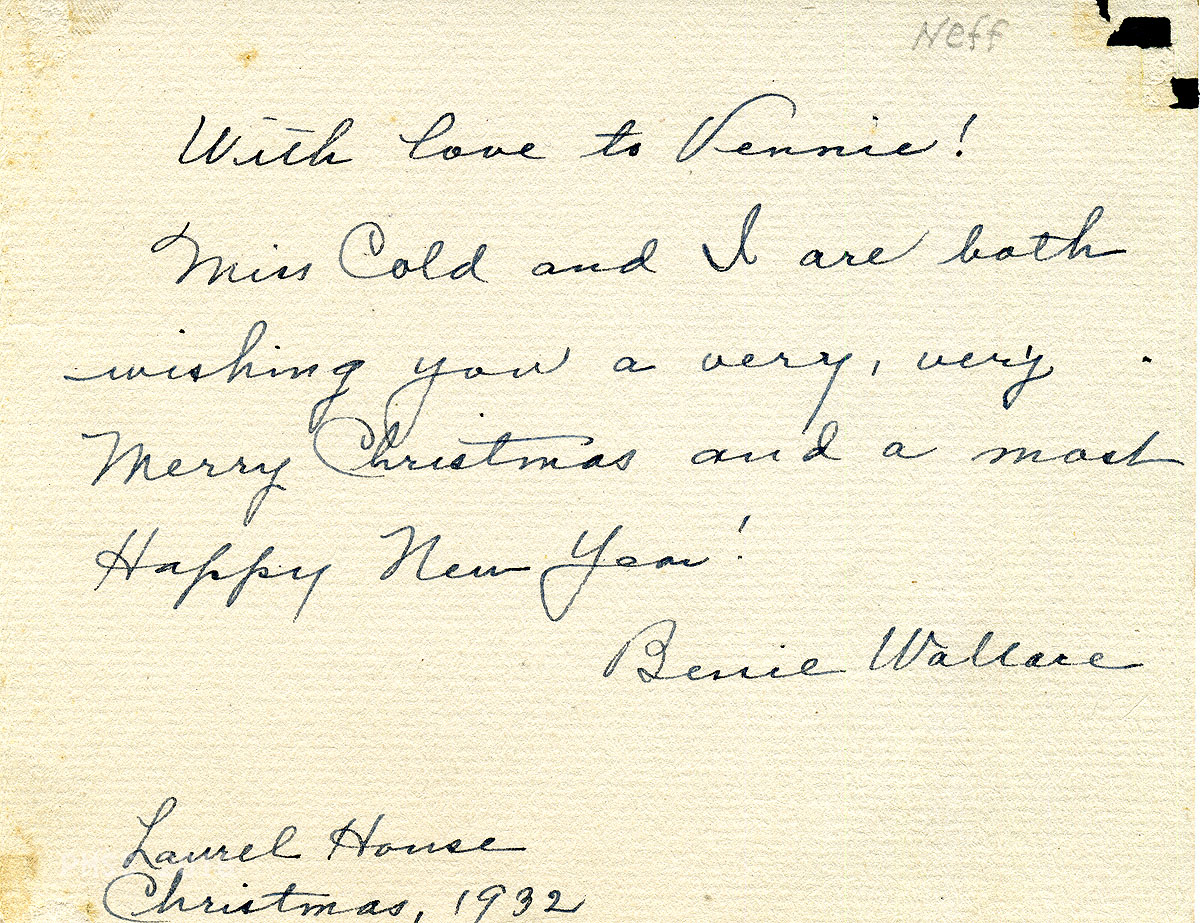 Neff
With love to Vennie!
Miss Cold and I are both
wishing you a very, very
Merry Christmas and a most
Happy New Year!
Bessie Wallace
Laurel House
Christmas, 1932